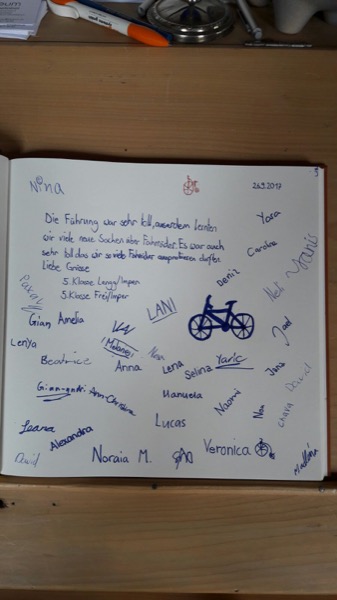 Nina
26.9.2017
Die Führung war sehr toll, ausserdem lernten
wir viele neue Sachen über Fahrräder. Es war auch
sehr toll das wir so viele Fahrräder ausprobieren durften.
Liebe Grüsse
5. Klasse Lengg/Imper
5. Klasse Frei/Imper
Yara
Carolina
Yanis
Deniz
Neli
LANI
Gian
Amelia
Melanie
Joel
Lenya
Beatrice
Anna
Lena
Selina
Yaric
Jana
David
Gian-Andri
Ann-Christina
Manuela
Naomi
Noa
Chiara
Leana
Lucas
Alexandra
David
Noraia M.
Veronica